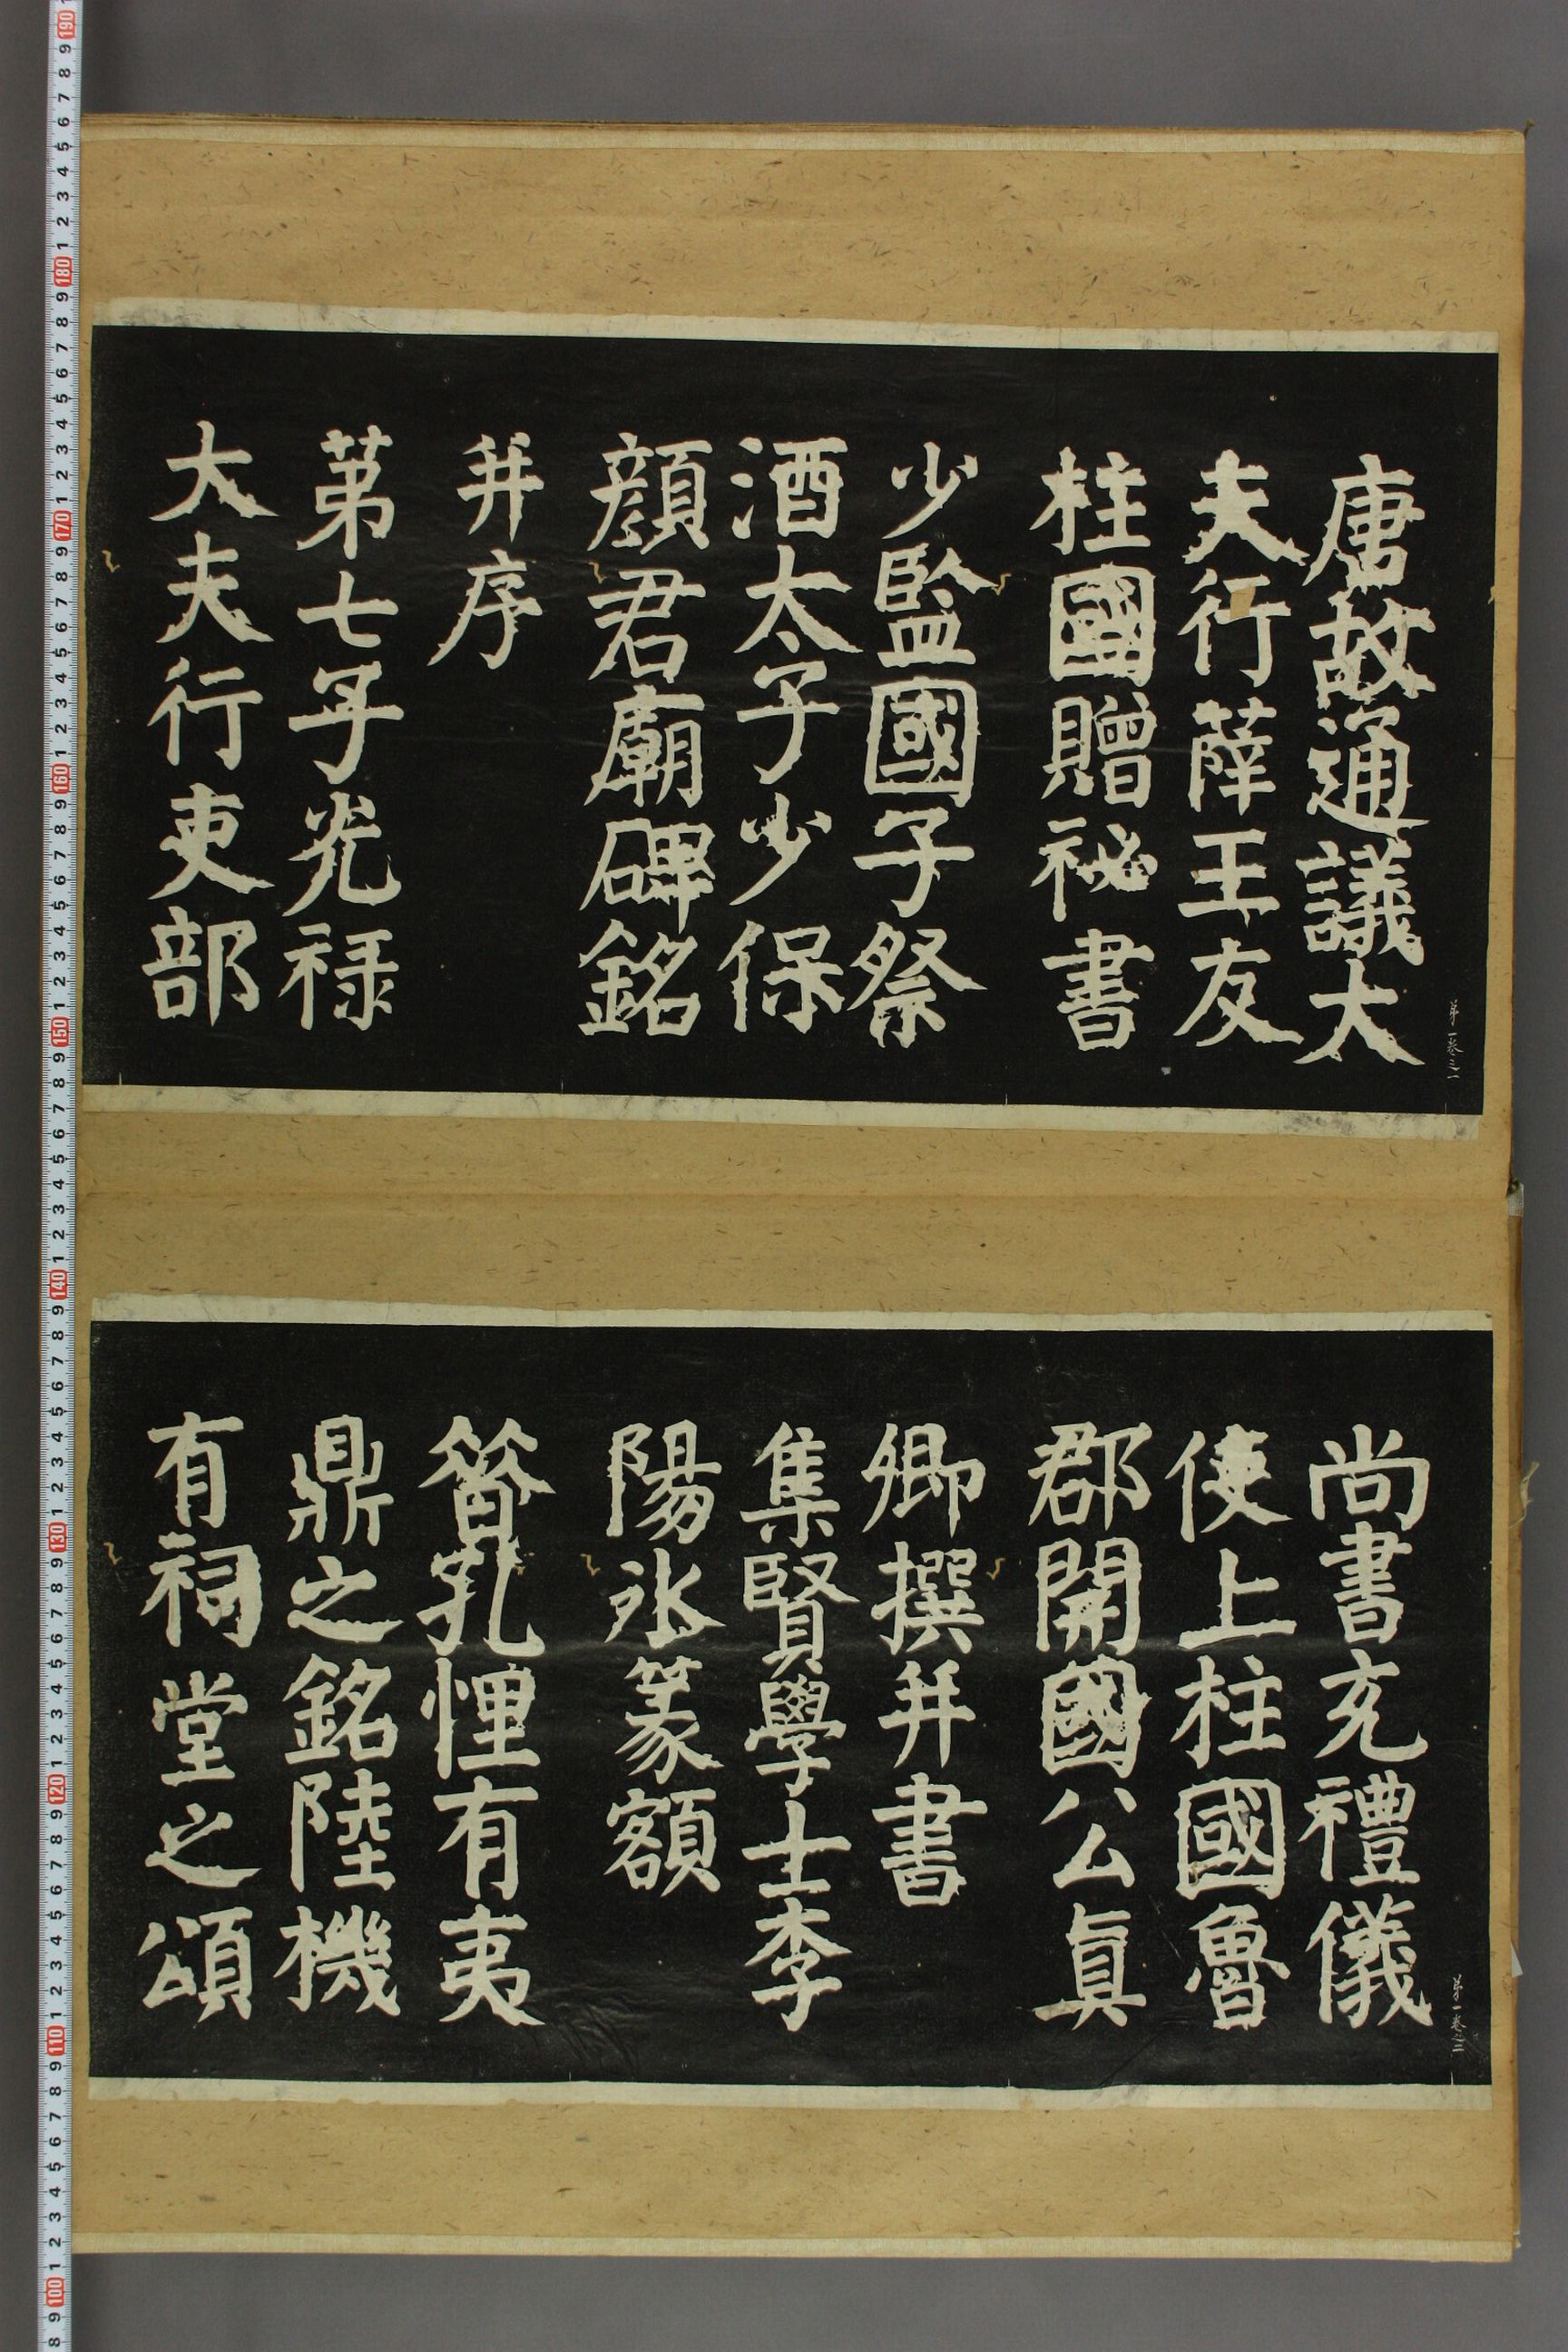 唐故通議大
夫行薛王友
柱國贈祕書
少監國子祭
酒太子少保
顏君廟碑銘
并序
第七子光祿
大夫行吏部
第一卷之一
尚書充禮儀
使上柱國魯
郡開國公真
卿撰并書
集賢學士李
陽冰篆額
簪孔悝有夷
鼎之銘陸機
有祠堂之頌
第一卷之二